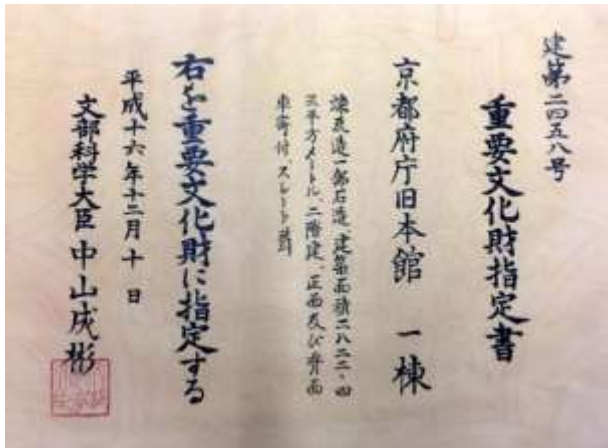 建第二四五八号
重要文化財指定書
京都府庁旧本館 一棟
煉瓦造一部石造、建築面積二八二二・四
三平方メートル、二階建、正面及び背面
車寄付、スレート葺
右を重要文化財に指定する
平成十六年十二月十日
文部科学大臣 中山成彬